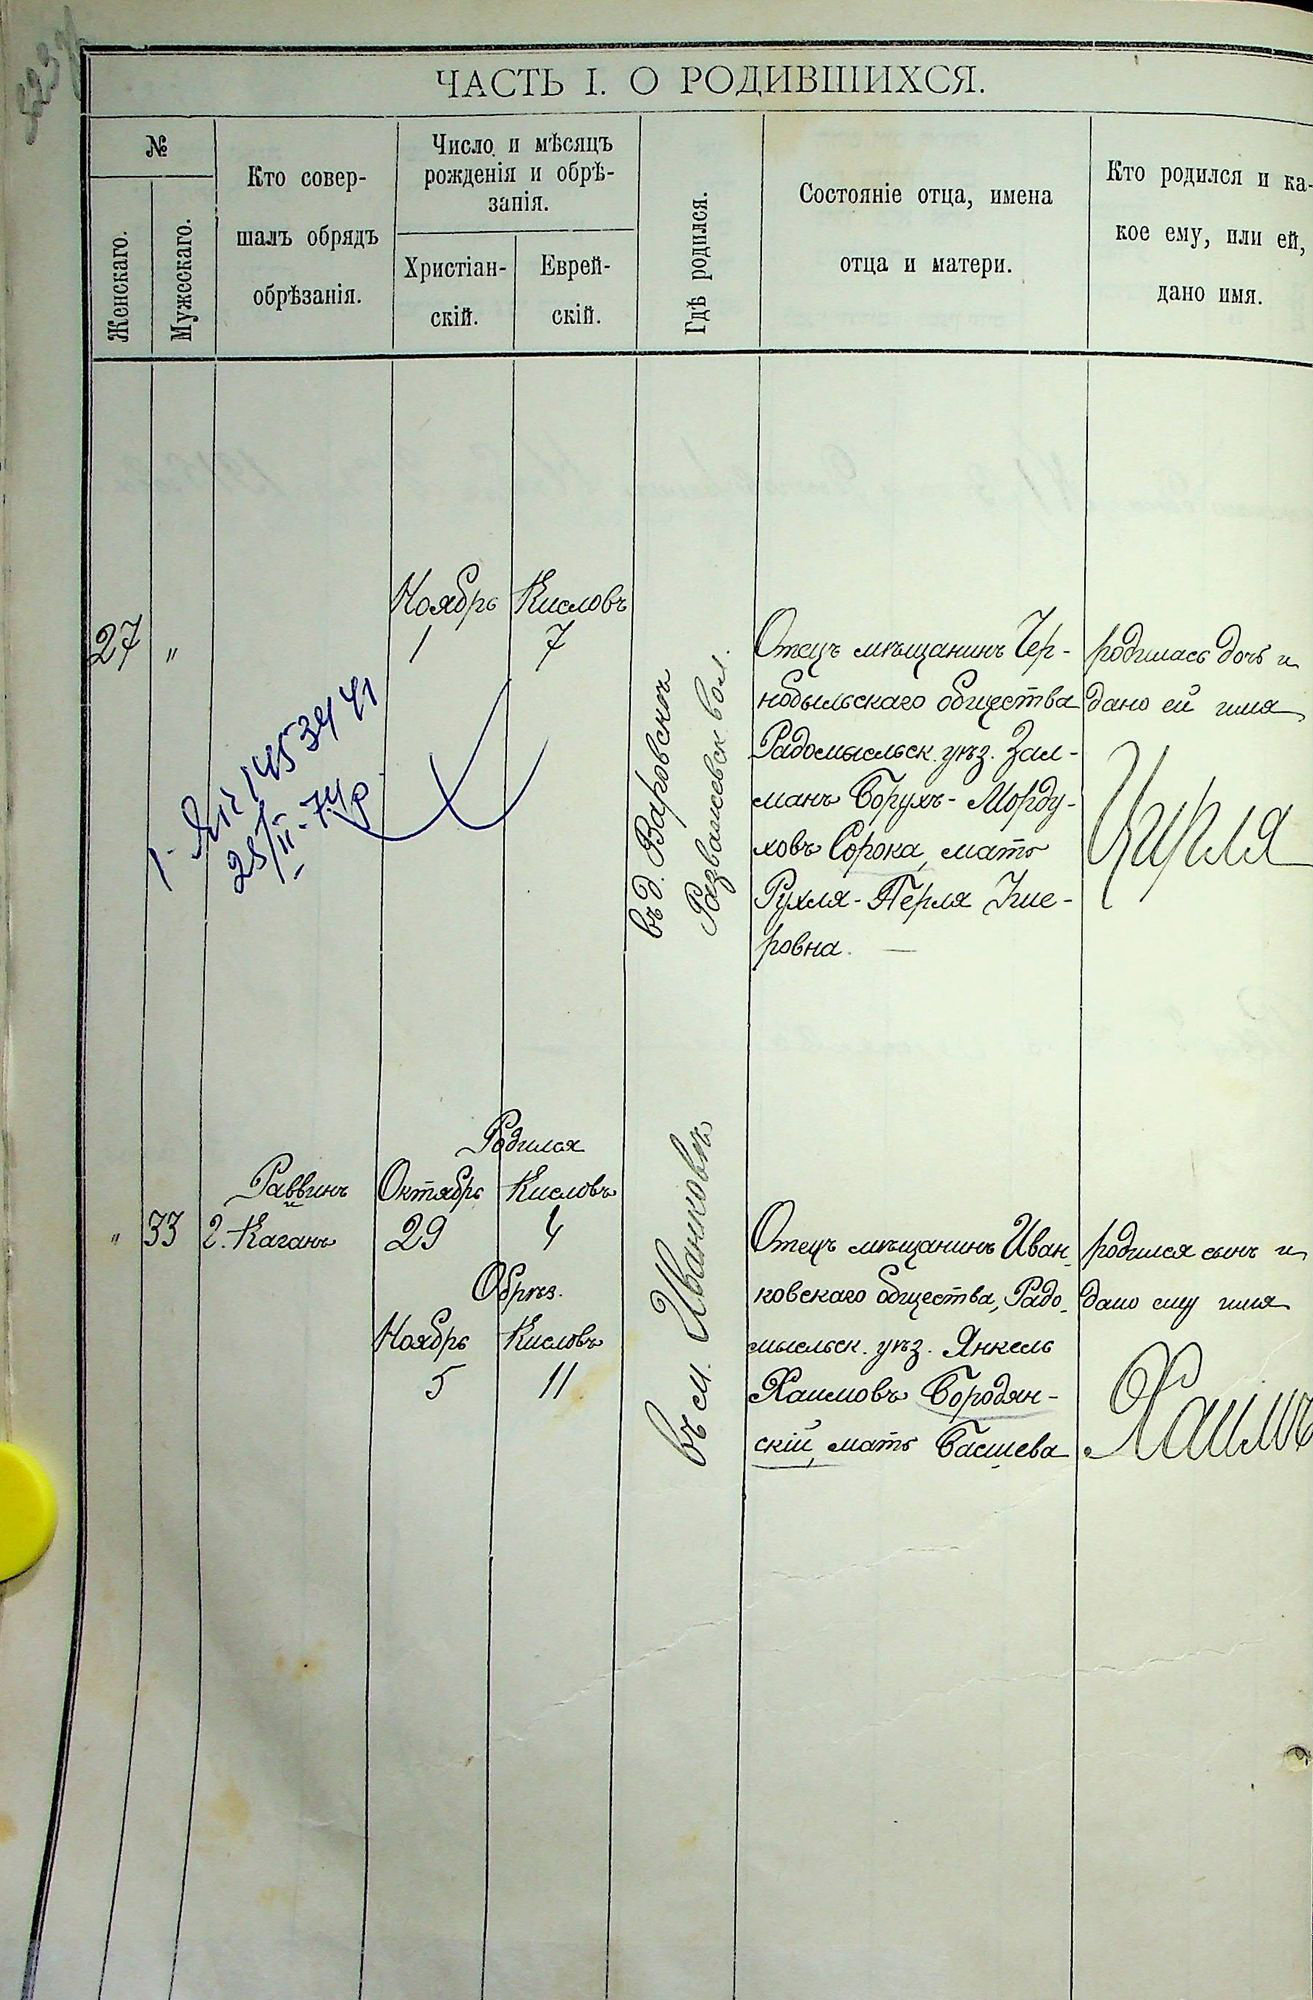 ЧАСТЬ I. О РОДИВШИХСЯ.
№
Женскаго.
Мужескаго.
Кто совер-
шалъ обрядъ
обрѣзанія.
Число и мѣсяцъ
рожденія и обрѣ-
занія.
Христіан-
скій.
Еврей-
скій.
Гдѣ родился.
Состояніе отца, имена
отца и матери.
Кто родился и ка-
кое ему, или ей,
дано имя.
27 "
Ноябрь
1
Кисловъ
7
въ д. Варовскъ
Разважевск. вол.
Отецъ мѣщанинъ Чер-
нобыльскаго общества
Радомысльск. уѣз. Зал-
манъ Борухъ-Морду-
ховъ Сорока, мать
Рухля-Перля Кие-
ровна.
родилась дочь и
дано ей имя
Цирля
145 39441
25/II-74р.
" 33
Раввинъ
Г. Каганъ
Родился
Октябрь Кисловъ
29 4
Обрѣз.
Ноябрь Кисловъ
5 11
въ м. Иванковѣ
Отецъ мѣщанинъ Иван-
ковскаго общества, Радо-
мысльск. уѣз. Янкель
Хаимовъ Бородян-
скій, мать Басшева
родился сынъ и
дано ему имя
Хаимъ